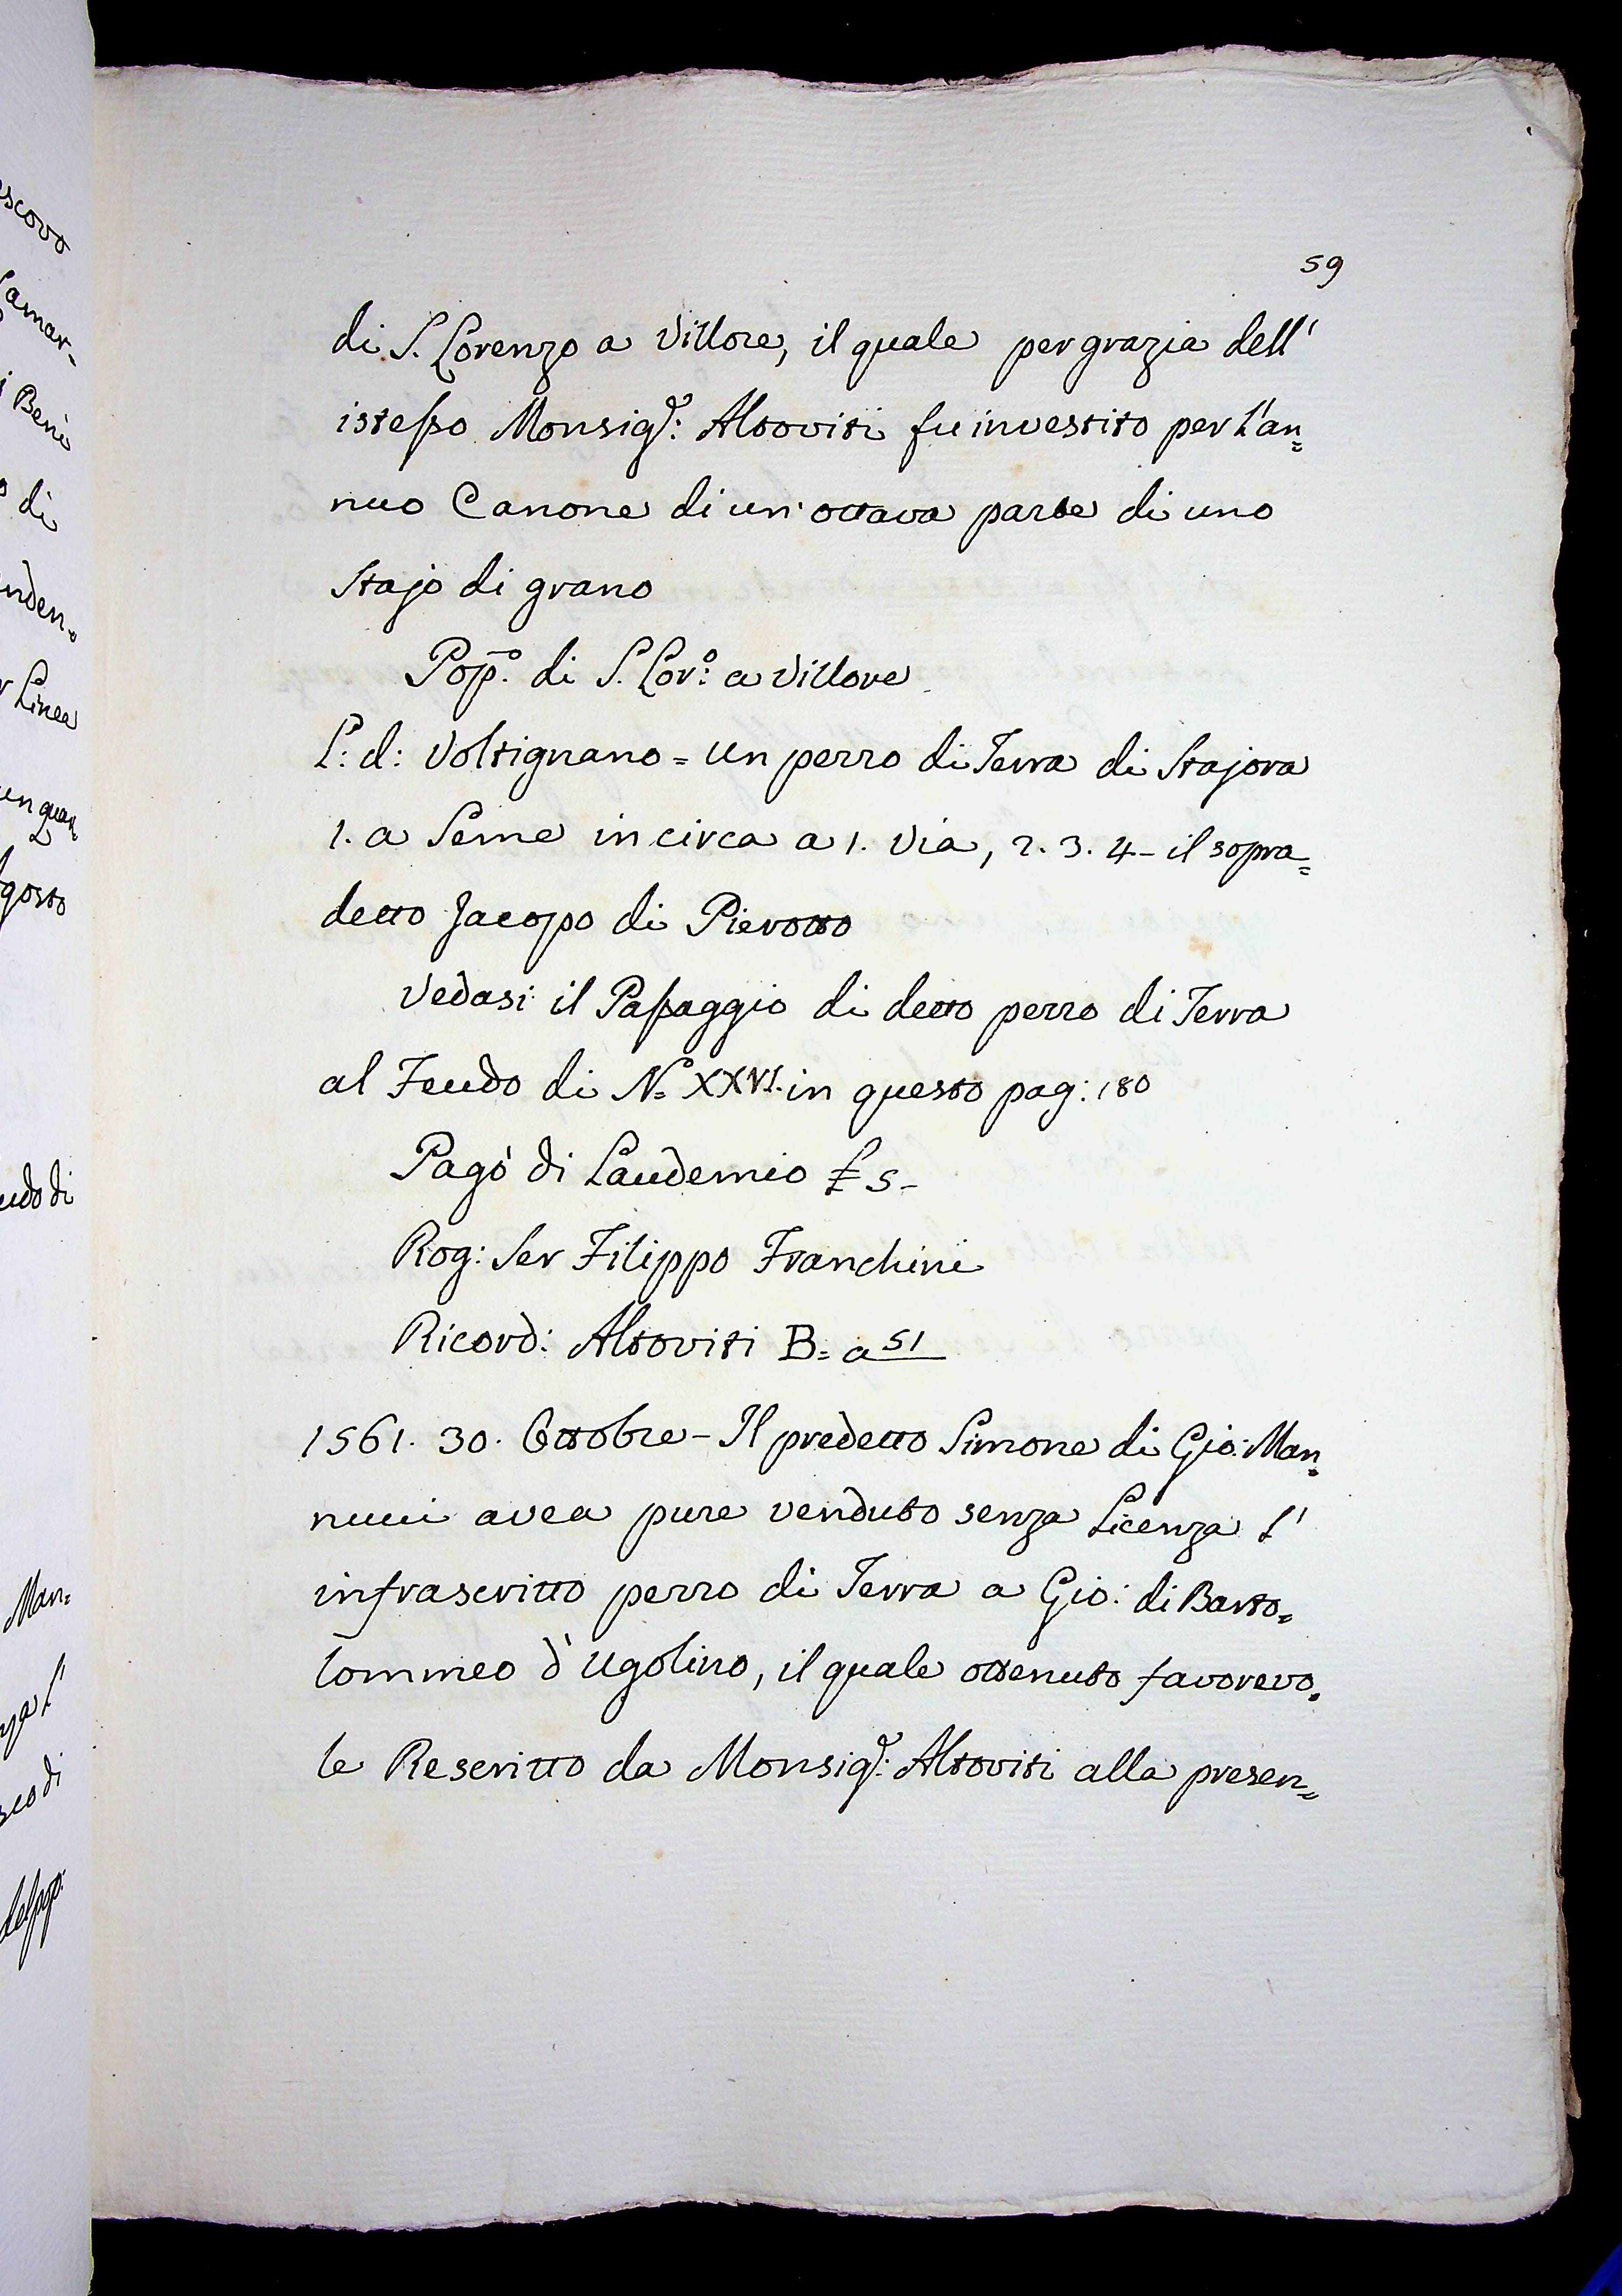 59
di S. Lorenzo a Villore, il quale per grazia dell'
istesso Monsig.r: Altoviti fu investito per l'an=
nuo Canone di un' ottava parte di uno
Stajo di grano
Pop.o di S. Lor.o: a Villore
L: d: Voltignano = Un pezzo di Terra di Stajora
1. a Seme in circa a 1. Via, 2. 3. 4 - il sopra=
detto Jacopo di Pierotto
Vedasi il Passaggio di detto pezzo di Terra
al Feudo di N.o XXVI. in questo pag: 180
Pagò di Laudemio £ 5 -
Rog: Ser Filippo Franchini
Ricord: Altoviti B= a 51
1561. 30. Ottobre - Il predetto Simone di Gio: Man=
nucci avea pure venduto senza Licenza l'
infrascritto pezzo di Terra a Gio: di Barto=
lommeo d'Ugolino, il quale ottenuto favorevo=
le Rescritto da Monsig.r: Altoviti alla presen=
escovo
Camar-
i Beni
di
nden=
r Linea
un quar=
gosto
udo di
Man=
nza l'
di
del pop: